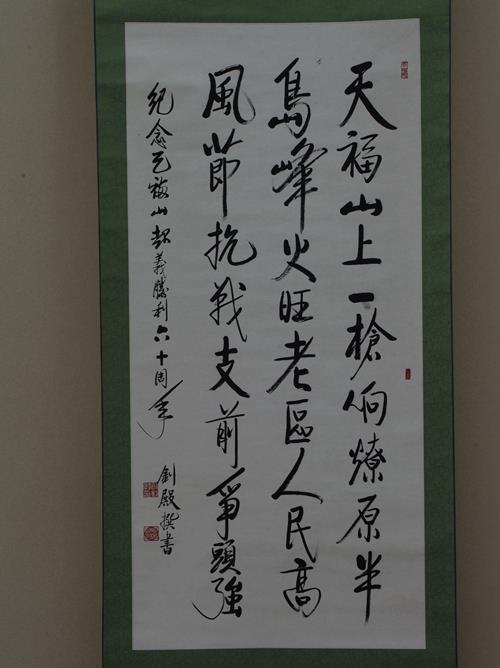 天福山上一槍响燎原半
島峰火旺老區人民高
風節抗战支前爭頭強
纪念天福山起義勝利六十周年
劉殿撰書